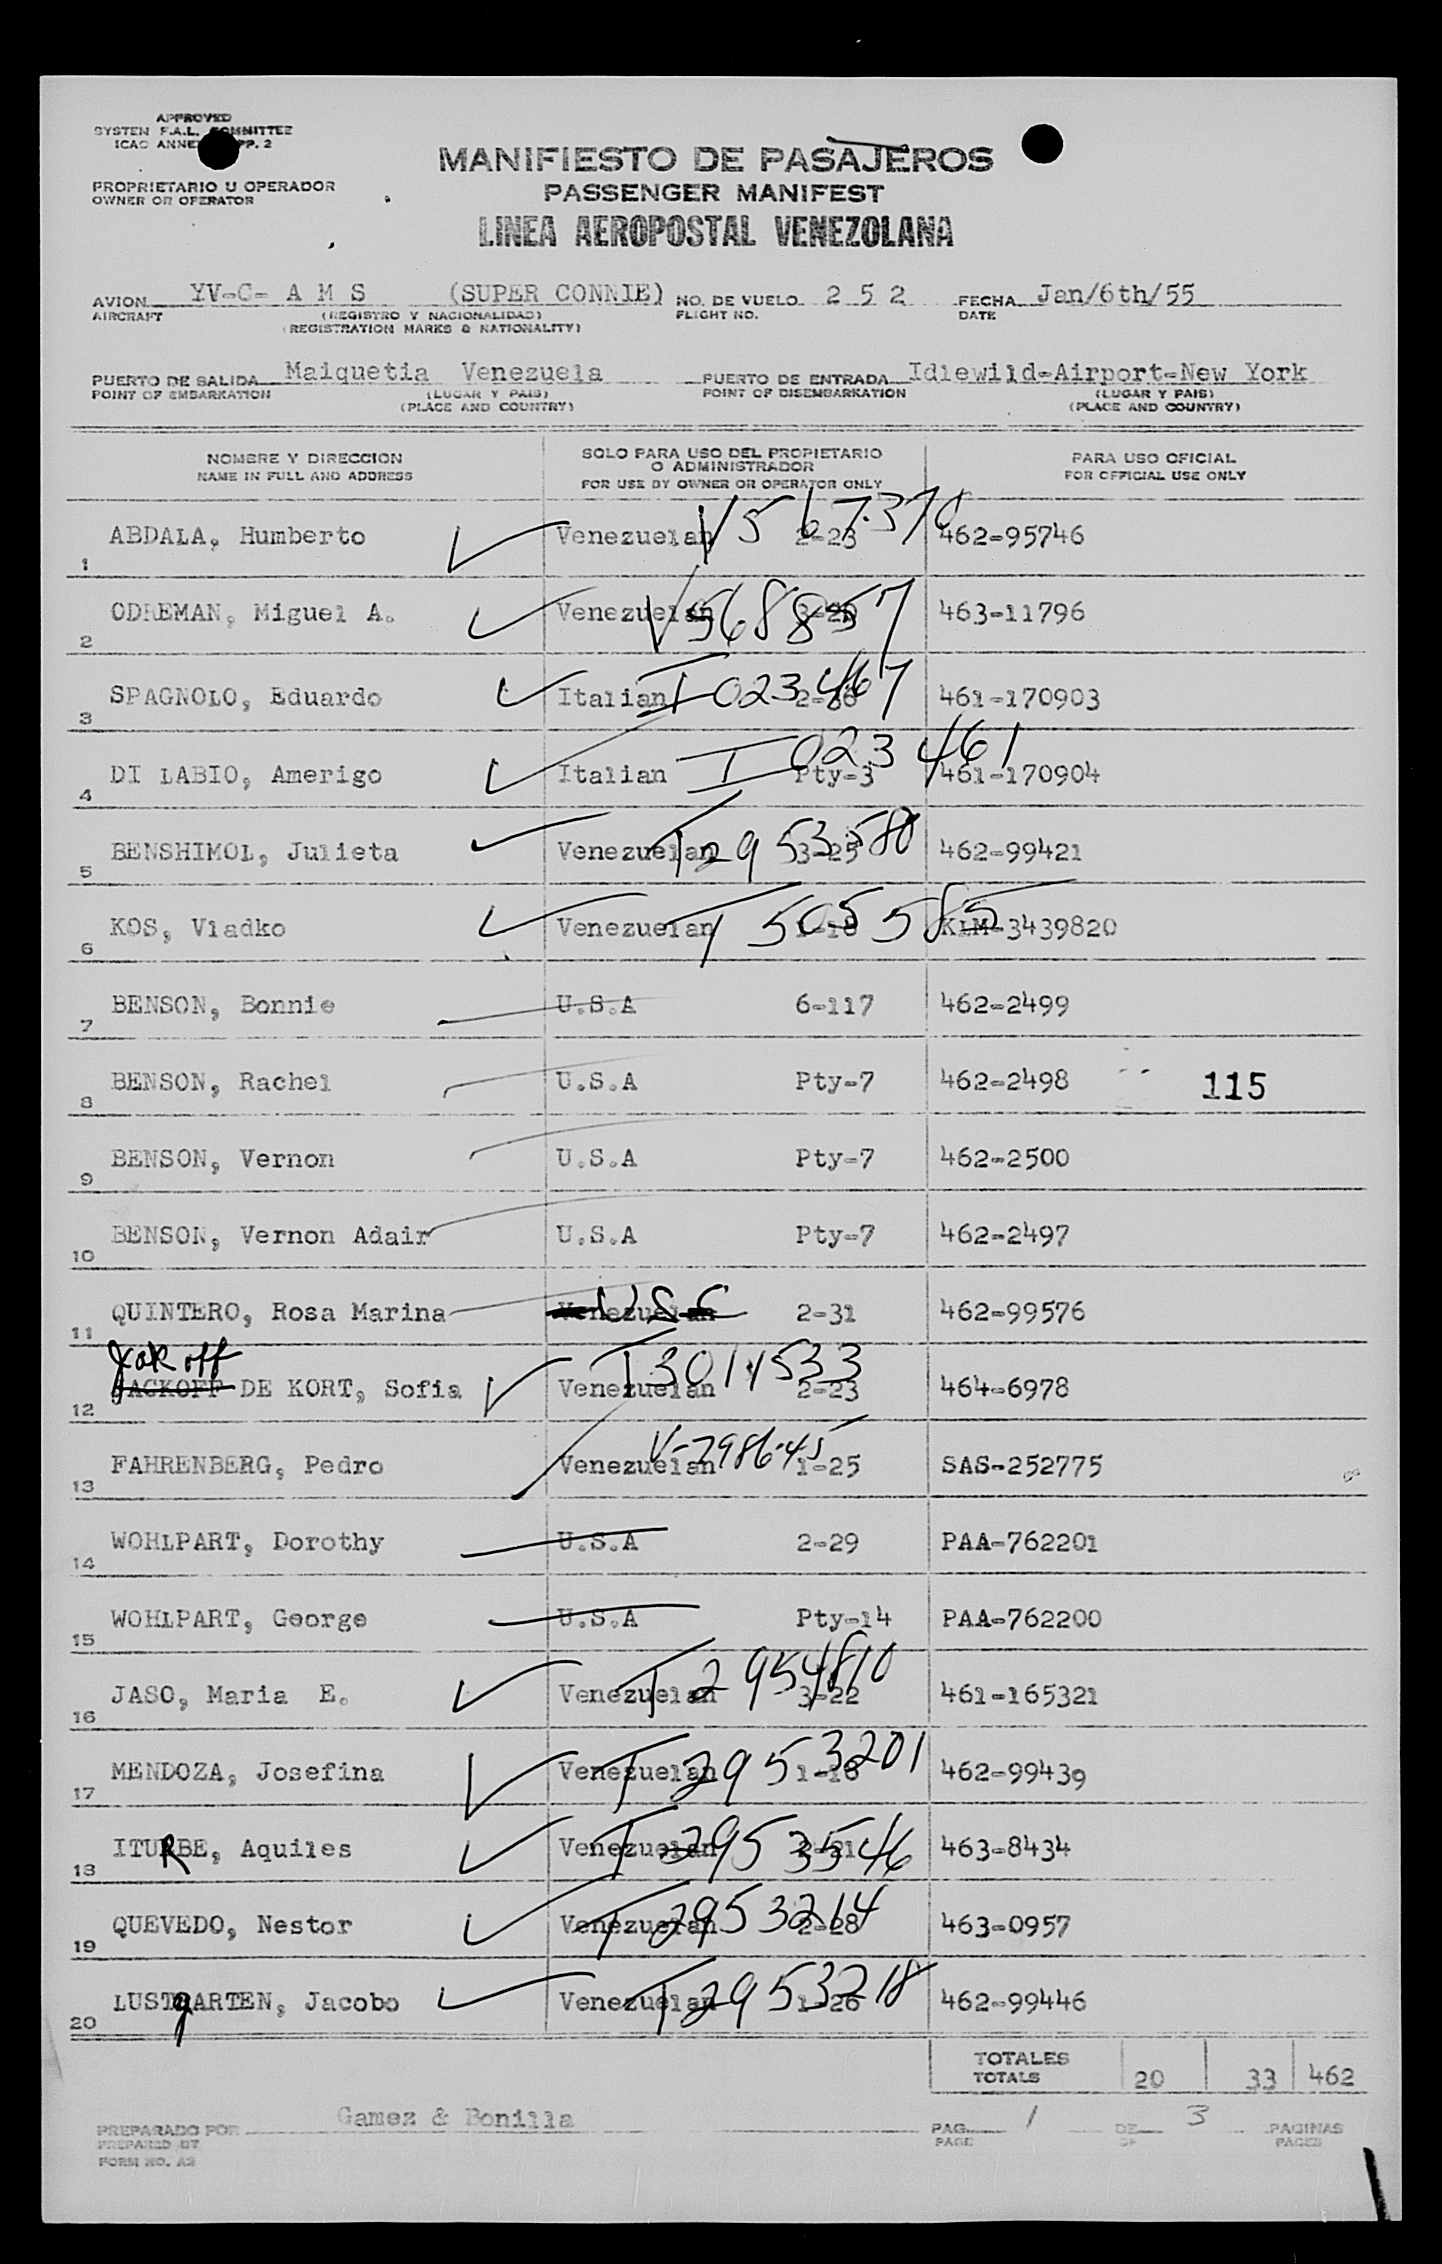 APPROVED
SYSTEM F.A.L. COMMITTEE
ICAO ANNEX APP. 2
MANIFIESTO DE PASAJEROS
PROPRIETARIO U OPERADOR
OWNER OR OPERATOR
PASSENGER MANIFEST
LINEA AEROPOSTAL VENEZOLANA
AVION YV-C- A M S (SUPER CONNIE) NO. DE VUELO 2 5 2 FECHA Jan/6th/55
AIRCRAFT (REGISTRO Y NACIONALIDAD) FLIGHT NO. DATE
(REGISTRATION MARKS & NATIONALITY)
PUERTO DE SALIDA Maiquetia Venezuela PUERTO DE ENTRADA Idlewild-Airport-New York
POINT OF EMBARKATION (LUGAR Y PAIS) POINT OF DISEMBARKATION (LUGAR Y PAIS)
(PLACE AND COUNTRY) (PLACE AND COUNTRY)
NOMBRE Y DIRECCION SOLO PARA USO DEL PROPIETARIO PARA USO OFICIAL
NAME IN FULL AND ADDRESS O ADMINISTRADOR FOR OFFICIAL USE ONLY
FOR USE BY OWNER OR OPERATOR ONLY
1 ABDALA, Humberto Venezuelan V567370 2-23 462-95746
2 ODREMAN, Miguel A. Venezuelan V568857 463-11796
3 SPAGNOLO, Eduardo Italian I-023467 461-170903
4 DI LABIO, Amerigo Italian I 023461 Pty-3 461-170904
5 BENSHIMOL, Julieta Venezuelan T2953580 3-25 462-99421
6 KOS, Vladko Venezuelan T505585 1-18 KLM-3439820
7 BENSON, Bonnie U.S.A 6-117 462-2499
8 BENSON, Rachel U.S.A Pty-7 462-2498 115
9 BENSON, Vernon U.S.A Pty-7 462-2500
10 BENSON, Vernon Adair U.S.A Pty-7 462-2497
11 QUINTERO, Rosa Marina Venezuelan USC 2-31 462-99576
Jakoff
12 JACKOFF DE KORT, Sofia Venezuelan T3014533 2-23 464-6978
13 FAHRENBERG, Pedro Venezuelan V-798645 1-25 SAS-252775
14 WOHLPART, Dorothy U.S.A 2-29 PAA-762201
15 WOHLPART, George U.S.A Pty-14 PAA-762200
16 JASO, Maria E. Venezuelan T2954810 3-22 461-165321
17 MENDOZA, Josefina Venezuelan T2953201 1-18 462-99439
18 ITURBE, Aquiles Venezuelan T2953546 463-8434
19 QUEVEDO, Nestor Venezuelan T2953214 2-28 463-0957
20 LUSTgARTEN, Jacobo Venezuelan T2953218 1-26 462-99446
TOTALES
TOTALS 20 33 462
PREPARADO POR Gamez & Bonilla PAG. 1 DE 3 PAGINAS
PREPARED BY PAGE OF PAGES
FORM NO. A2